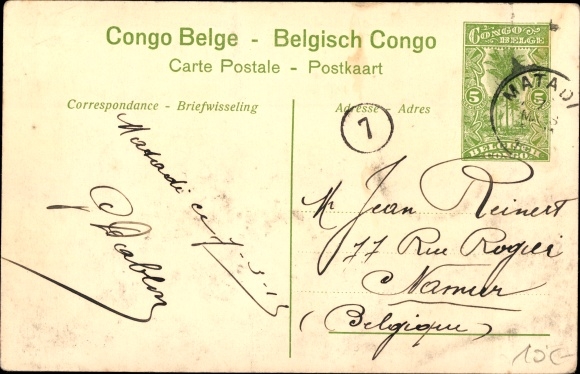 Congo Belge - Belgisch Congo
Carte Postale - Postkaart
Correspondance - Briefwisseling
Adresse - Adres
CONGO BELGE
5 5
BELGISCH CONGO
MATADI
7
Matadi ce 7-3-
Mr Jean Reinert
77 Rue Rogier
Namur
(Belgique)